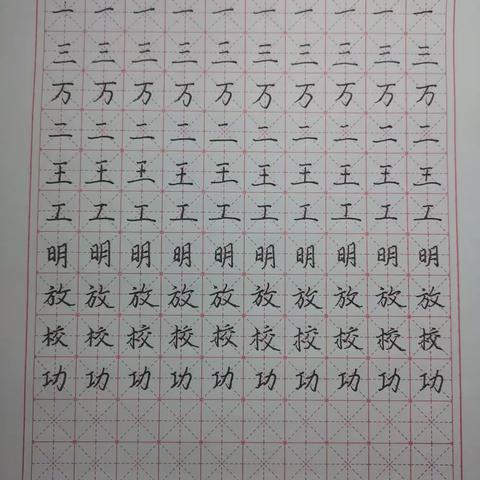 一一一一一一一一一一
三三三三三三三三三三
万万万万万万万万万万
二二二二二二二二二二
王王王王王王王王王王
工工工工工工工工工工
明明明明明明明明明明
放放放放放放放放放放
校校校校校校校校校校
功功功功功功功功功功